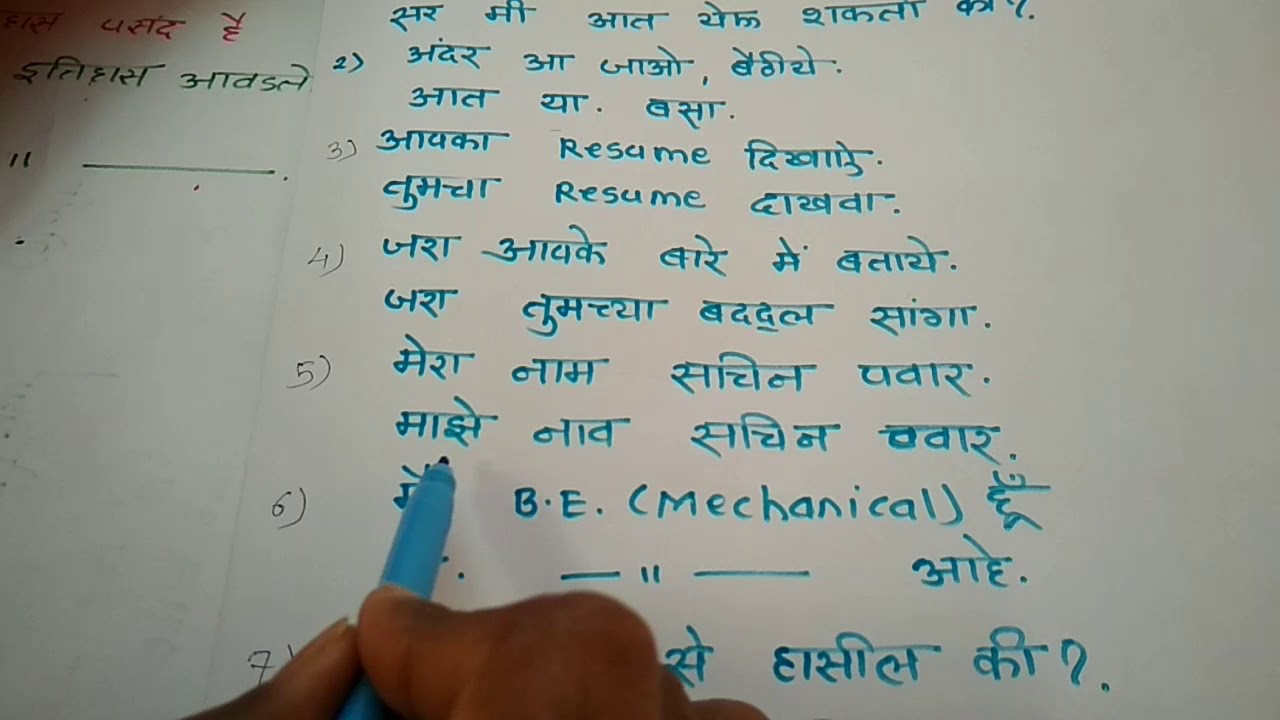 पसंद है
इतिहास आवडले
" ———.
सर मी आत येऊ शकतो का?.
2) अंदर आ जाओ, बैठीये.
आत या. बसा.
3) आपका Resume दिखाऐ.
तुमचा Resume दाखवा.
4) जरा आपके बारे में बताये.
जरा तुमच्या बददूल सांगा.
5) मेरा नाम सचिन पवार.
माझे नाव सचिन चवार.
6) B.E. (Mechanical) हूँ
— " — आहे.
7) से हासील की?.